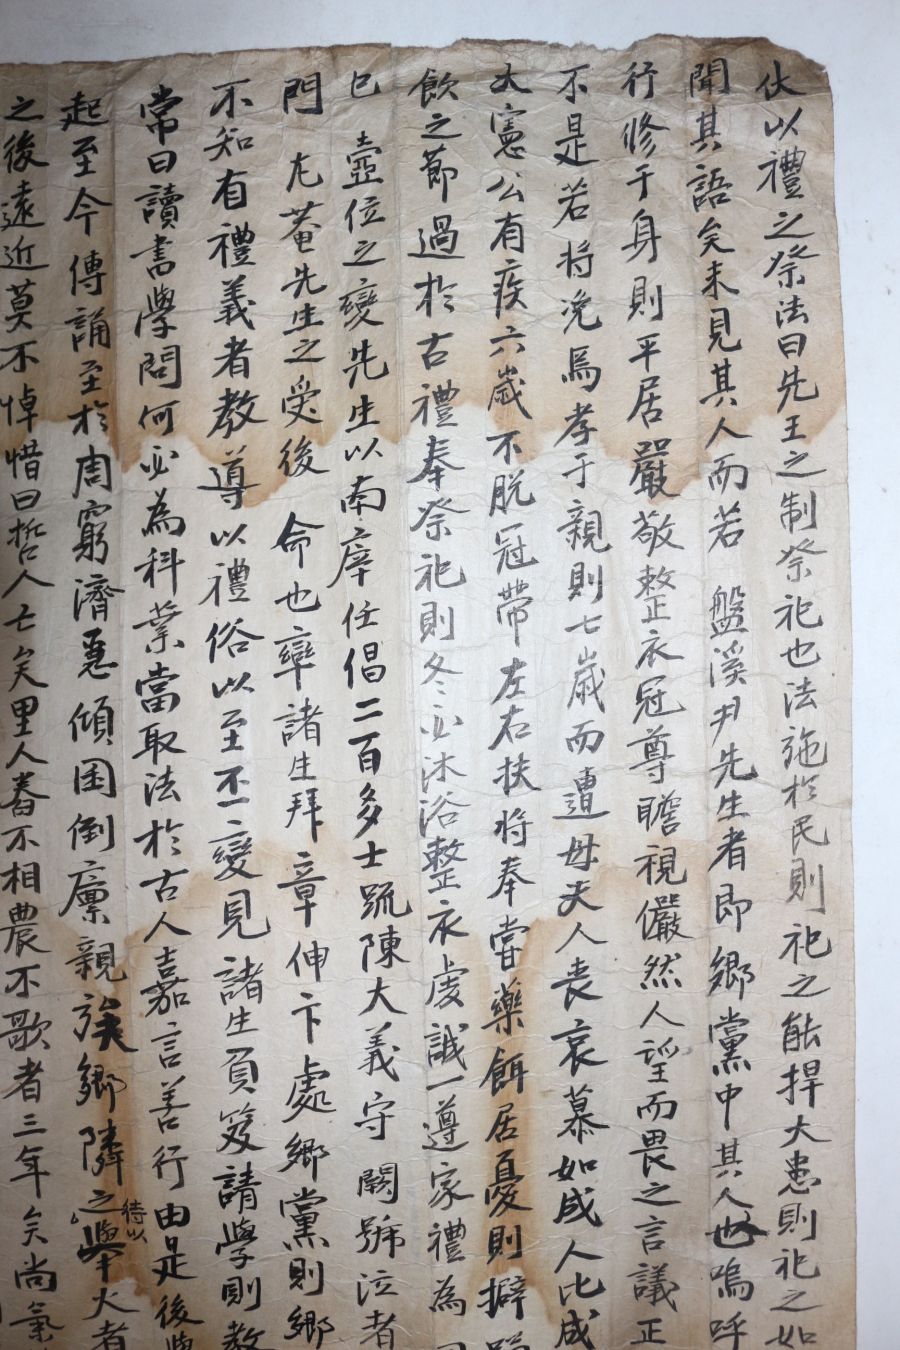 伏以禮之祭法曰先王之制祭祀也法施於民則祀之能捍大患則祀之如
聞其語矣未見其人而若 盤溪尹先生者即鄉黨中其人也嗚呼
行修于身則平居嚴敬整衣冠尊瞻視儼然人望而畏之言議正
不是若將浼焉孝于親則七歲而遭母夫人喪哀慕如成人比成
大憲公有疾六歲不脫冠帶左右扶將奉嘗藥餌居憂則擗踊
飲之節過於古禮奉祭祀則冬必沐浴整衣虔誠一遵家禮為
巳 壼位之變先生以南庠任倡二百多士疏陳大義守 闕號泣者
門 尤菴先生之受後 命也率諸生拜章伸卞處鄉黨則鄉
不知有禮義者教導以禮俗以至丕變見諸生負笈請學則教
常曰讀書學問何必為科業當取法於古人嘉言善行由是後
起至今傳誦至於周窮濟急傾囷倒廩親族鄉隣之待以舉火者
之後遠近莫不悼惜曰哲人亡矣里人舂不相農不歌者三年矣尚氣